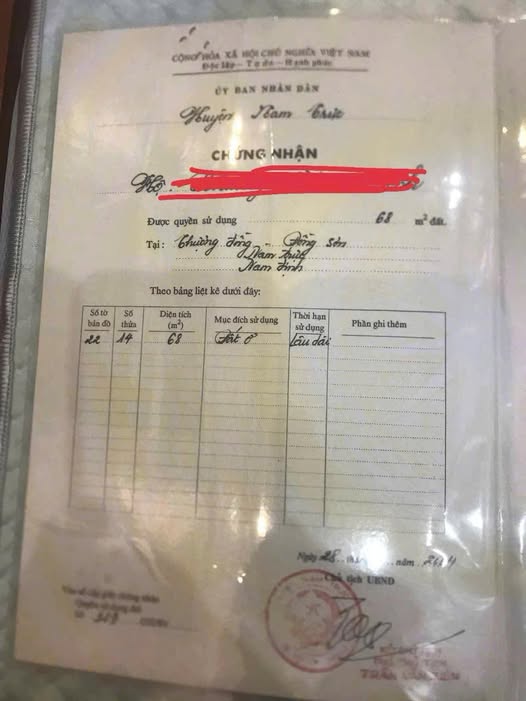 CỘNG HÒA XÃ HỘI CHỦ NGHĨA VIỆT NAM
Độc lập - Tự do - Hạnh phúc
ỦY BAN NHÂN DÂN
Huyện Nam Trực
CHỨNG NHẬN
Hộ.
Được quyền sử dụng 68 m² đất.
Tại: Thượng Đồng Đồng Sơn
Nam Trực
Nam Định
Theo bảng liệt kê dưới đây:
Số tờ bản đồ Số thửa Diện tích (m²) Mục đích sử dụng Thời hạn sử dụng Phần ghi thêm
22 14 68 Đất ở Lâu dài
Ngày 28 năm
Chủ tịch UBND
Vào sổ cấp giấy chứng nhận
Quyền sử dụng đất
Số
TRẦN VĂN